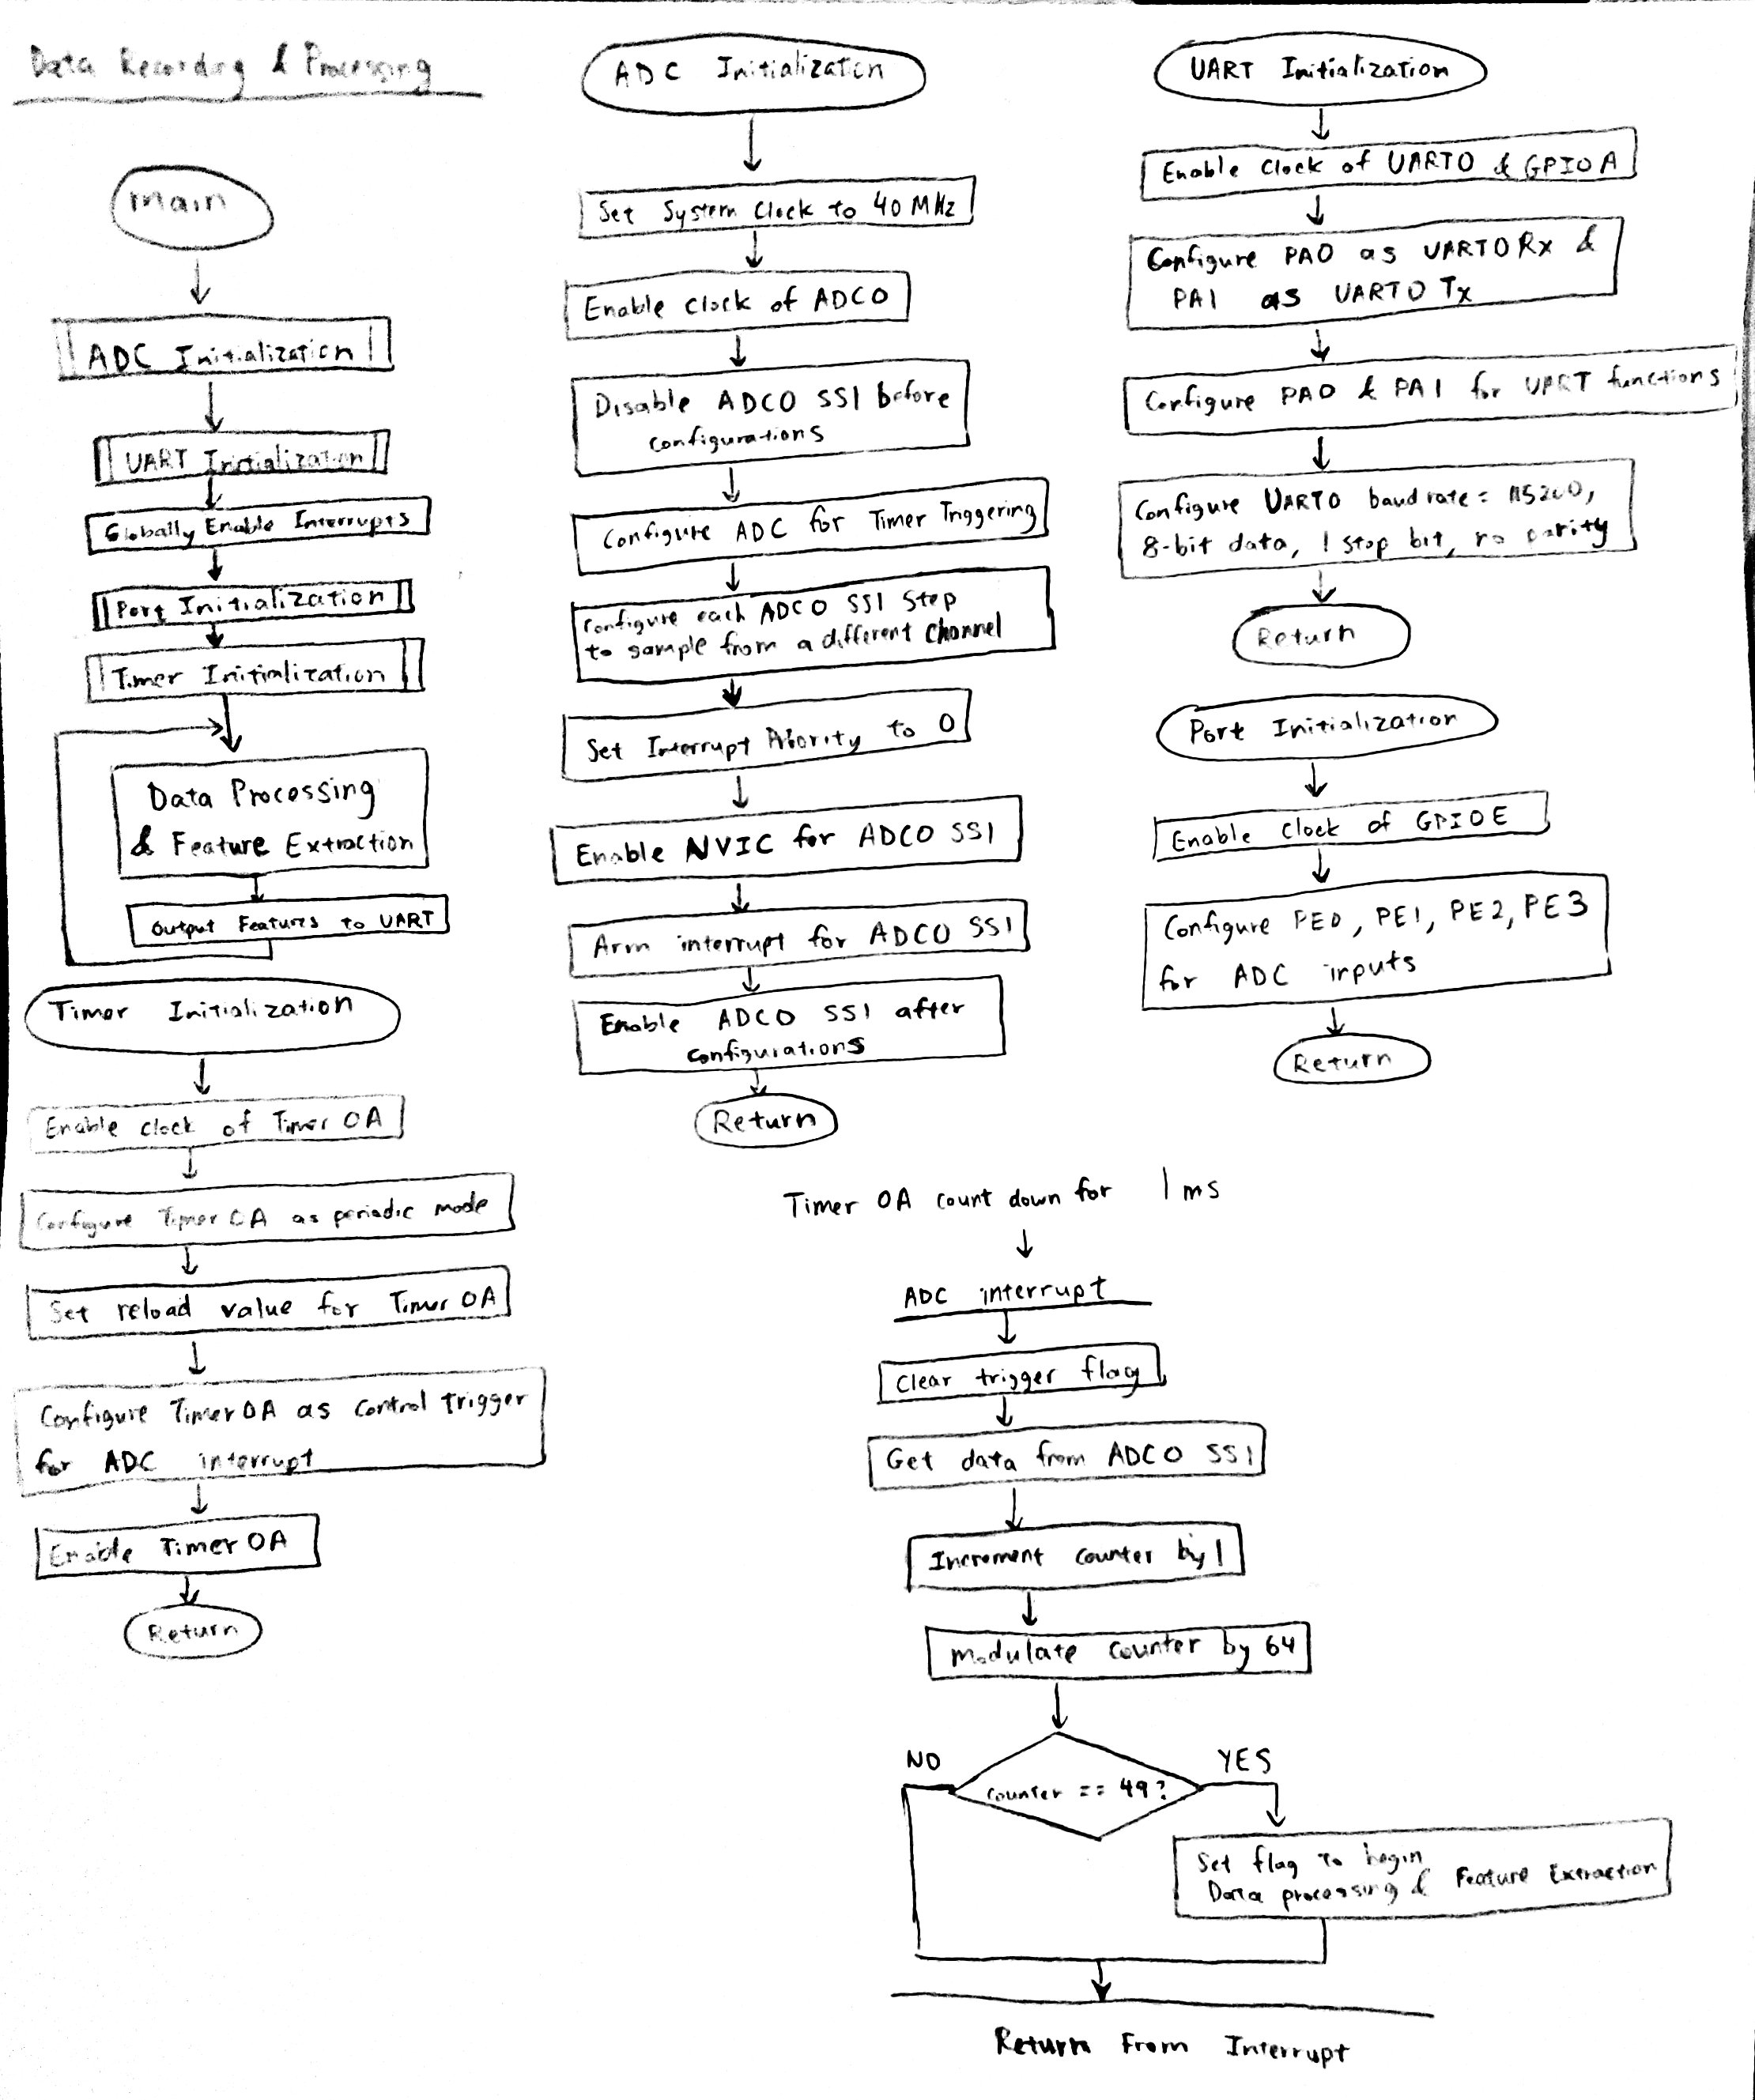 Data Recording & Processing
main
ADC Initialization
UART Initialization
Globally Enable Interrupts
Port Initialization
Timer Initialization
Data Processing
& Feature Extraction
Output Features to UART
Timer Initialization
Enable clock of Timer 0A
Configure Timer 0A as periodic mode
Set reload value for Timer 0A
Configure Timer 0A as control trigger
for ADC interrupt
Enable Timer 0A
Return
ADC Initialization
Set System Clock to 40 MHz
Enable Clock of ADC0
Disable ADC0 SS1 before
configurations
Configure ADC for Timer Triggering
Configure each ADC0 SS1 Step
to sample from a different channel
Set Interrupt Priority to 0
Enable NVIC for ADC0 SS1
Arm interrupt for ADC0 SS1
Enable ADC0 SS1 after
configurations
Return
UART Initialization
Enable Clock of UART0 & GPIO A
Configure PA0 as UART0 Rx &
PA1 as UART0 Tx
Configure PA0 & PA1 for UART functions
Configure UART0 baud rate = 115200,
8-bit data, 1 stop bit, no parity
Return
Port Initialization
Enable Clock of GPIO E
Configure PE0, PE1, PE2, PE3
for ADC inputs
Return
Timer 0A count down for 1 ms
ADC interrupt
Clear trigger flag
Get data from ADC0 SS1
Increment counter by 1
Modulate counter by 64
counter == 49?
NO
YES
Set flag to begin
Data processing & Feature Extraction
Return From Interrupt